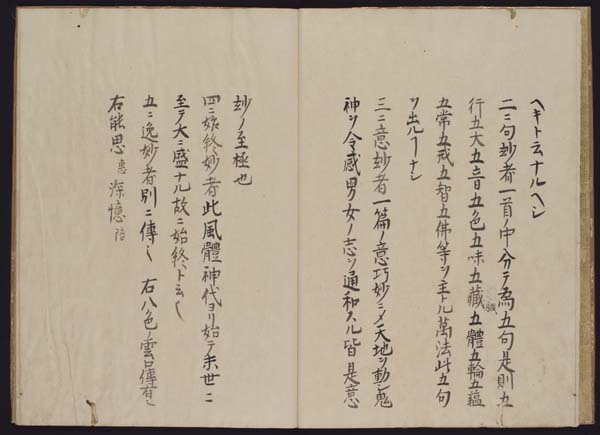 ヘキト云ナルヘシ
二ニ句妙者一首ノ中分テ為五句是則五
行五大五音五色五味五藏五體五輪五蘊
五常五戒五智五佛等ヲ主トル萬法此五句
ヲ出ルヿナシ
三ニ意妙者一篇ノ意巧妙ニシテ天地ヲ動シ鬼
神ヲ令感男女ノ志ヲ通和スル皆是意
妙ノ至極也
四ニ始終妙者此風體神代ヨリ始テ末世ニ
至テ大ニ盛ナル故ニ始終ト云也
五ニ逸妙者別ニ傳之 右八色ノ雲口傳有之
右能思 深憶